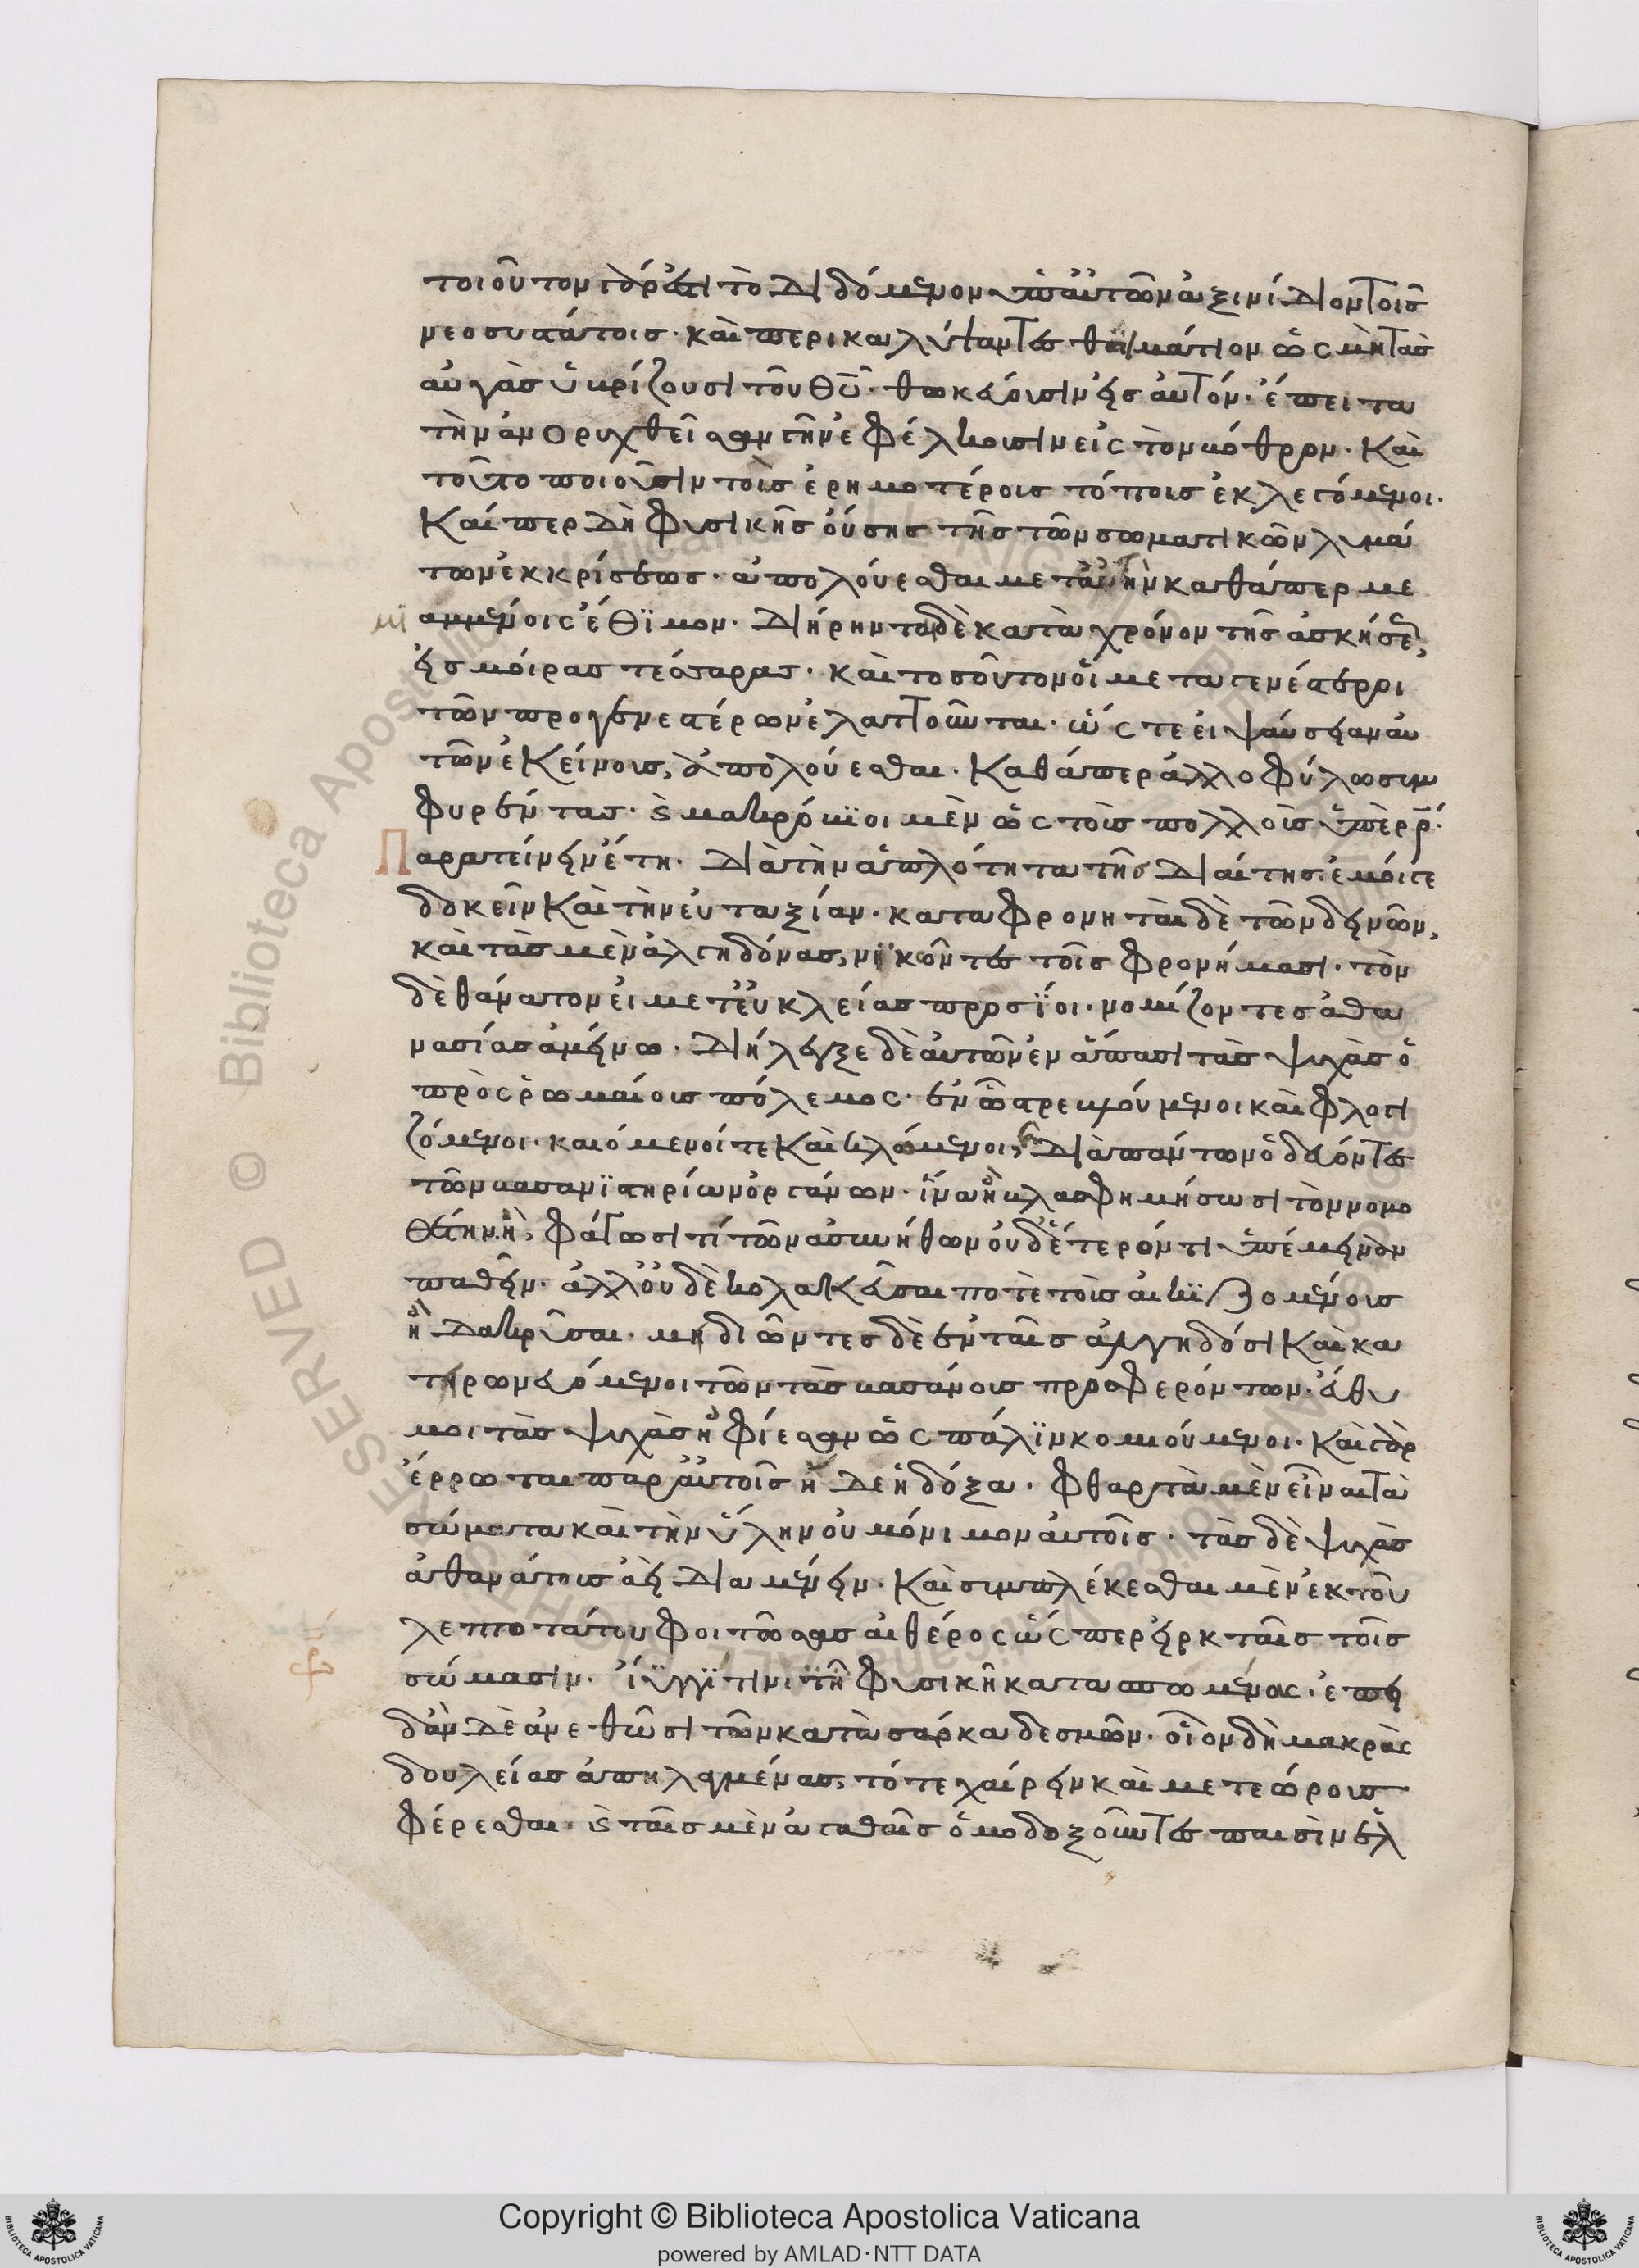 τοιοῦτον γάρ ἐστι τὸ διδόμενον ὑπ' αὐτῶν ἀξινίδιον τοῖς
νεοσυστάτοις· καὶ περικαλύψαντες θοἰμάτιον ὡς μὴ τὰς
αὐγὰς ὑβρίζουσι τοῦ θῦ· θακεύουσιν εἰς αὐτόν· ἔπειτα
τὴν ἀνορυχθεῖσαν γῆν ἐφέλκουσιν εἰς τὸν βόθρον· Καὶ
τοῦτο ποιοῦσιν τοῖς ἐρημοτέροις τόποις ἐκλεγόμενοι·
Καίπερ δὴ φυσικῆς οὔσης τῆς τῶν σωματικῶν λυμά
των ἐκκρίσεως· ἀπολούεσθαι μετ' αὐτὴν καθάπερ με
μϊ αμμένοις ἔθϊμον· διήρηνται δὲ κατὰ χρόνον τῆς ἀσκήσεως,
εἰς μοίρας τέσσαρας· καὶ τοσοῦτον οἱ μεταγενέστεροι
τῶν προγενεστέρων ἐλαττοῦνται· ὥς τε εἰ ψαύσειαν αὐ
τῶν ἐκείνους, ἀπολούεσθαι· Καθάπερ ἀλλοφύλω συμ
φυρέντας· καὶ μακρόβϊοι μὲν ὡς τοὺς πολλοὺς ὑπὲρ ρ·
Παρατείνειν ἔτη· διὰ τὴν ἁπλότητα τῆς διαίτης ἐμοί τε
δοκεῖν Καὶ τὴν εὐταξίαν· καταφρονηταὶ δὲ τῶν δεινῶν,
καὶ τὰς μὲν ἀλγηδόνας, νϊκῶντες τοῖς φρονήμασι· τὸν
δὲ θάνατον εἰ μετ' εὐκλείας προσϊοι· νομίζοντες ἀθα
νασίας ἀμείνω· διήλεγξε δὲ αὐτῶν ἐν ἅπασι τὰς ψυχὰς ὁ
πρὸς ῥωμαίους πόλεμος· ἐν ᾧ στρεβλούμενοι καὶ φλογι
ζόμενοι· καιόμενοί τε Καὶ κλώμενοι, καὶ διὰ πάντων ὁδεύοντες
τῶν βασανϊστηρίων ὀργάνων· ἵνα ἢ βλασφημήσωσι τὸν νομο
θέτην ἢ, φάγωσί τι τῶν ἀσυνήθων οὐδέτερόν τι ὑπέμεινον
παθεῖν· ἀλλ' οὐδὲ κολακεῦσαι ποτὲ τοὺς αἰκϊζομένους
ἢ δακρῦσαι· μειδιῶντες δὲ ἐν ταῖς ἀλγηδόσι Καὶ κα
τειρωνευόμενοι τῶν τὰς βασάνους προσφερόντων· εὔθυ
μοι τὰς ψυχὰς ἠφίεσαν ὡς πάλϊν κομιούμενοι· Καὶ γὰρ
ἔρρωται παρ' αὐτοῖς ἥδε ἡ δόξα· φθαρτὰ μὲν εἶναι τὰ
σώματα καὶ τὴν ὕλην οὐ μόνιμον αὐτοῖς· τὰς δὲ ψυχὰς
ἀθανάτους ἀεὶ διαμένειν· Καὶ συμπλέκεσθαι μὲν ἐκ τοῦ
λεπτοτάτου φοιτώσας αἰθέρος ὥς περ εἱρκταῖς τοῖς
σώμασιν· ἴϋγγϊ τινι τῆ φυσικῆ κατασπωμένας· ἐπει
δὰν δὲ ἀνεθῶσι τῶν κατὰ σάρκα δεσμῶν· οἷον δὴ μακρὰς
δουλείας ἀπηλαγμένας, τότε χαίρειν καὶ μετεώρους
φέρεσθαι· καὶ ταῖς μὲν ἀγαθαῖς ὁμοδοξοῦντες παισὶν ἑλ